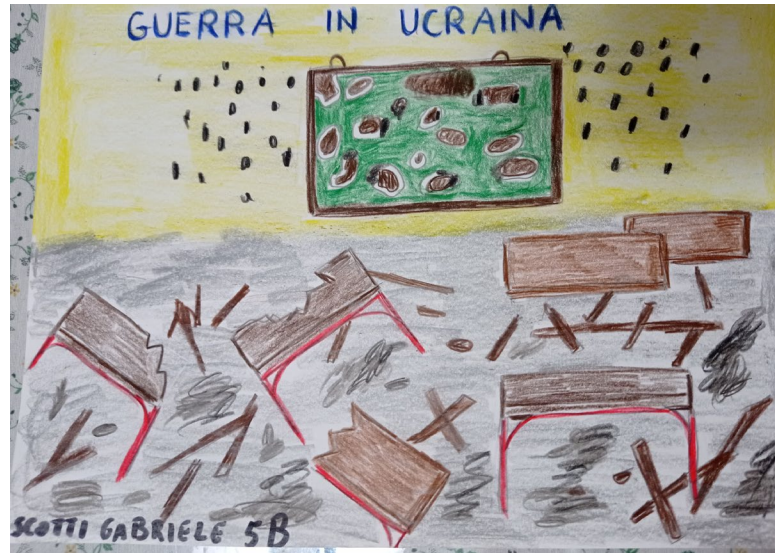 GUERRA IN UCRAINA
SCOTTI GABRIELE 5B